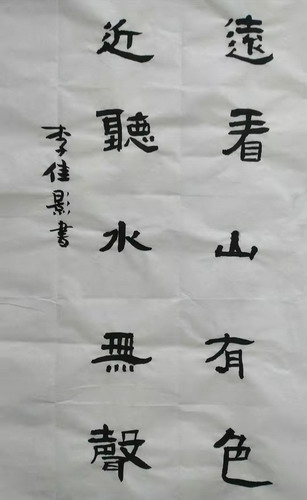 遠看山有色
近聽水無聲
李佳影書